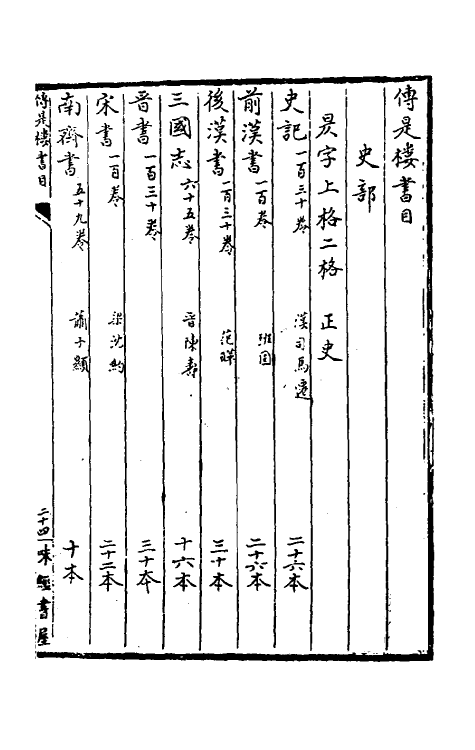 傳是樓書目
史部
昃字上格二格 正史
史記 一百三十卷 漢司馬遷 二十六本
前漢書 一百卷 班固 二十六本
後漢書 一百三十卷 范曄 三十本
三國志 六十五卷 晉陳壽 十六本
晉書 一百三十卷 三十本
宋書 一百卷 梁沈約 二十二本
南齊書 五十九卷 蕭子顯 十本
傳是樓書目 二十四 味經書屋